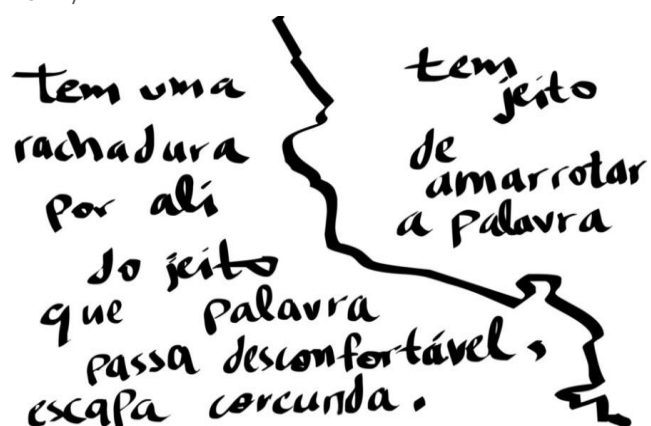 tem uma
rachadura
por ali
do jeito
que palavra
passa desconfortável,
escapa corcunda.
tem
jeito
de
amarrotar
a palavra